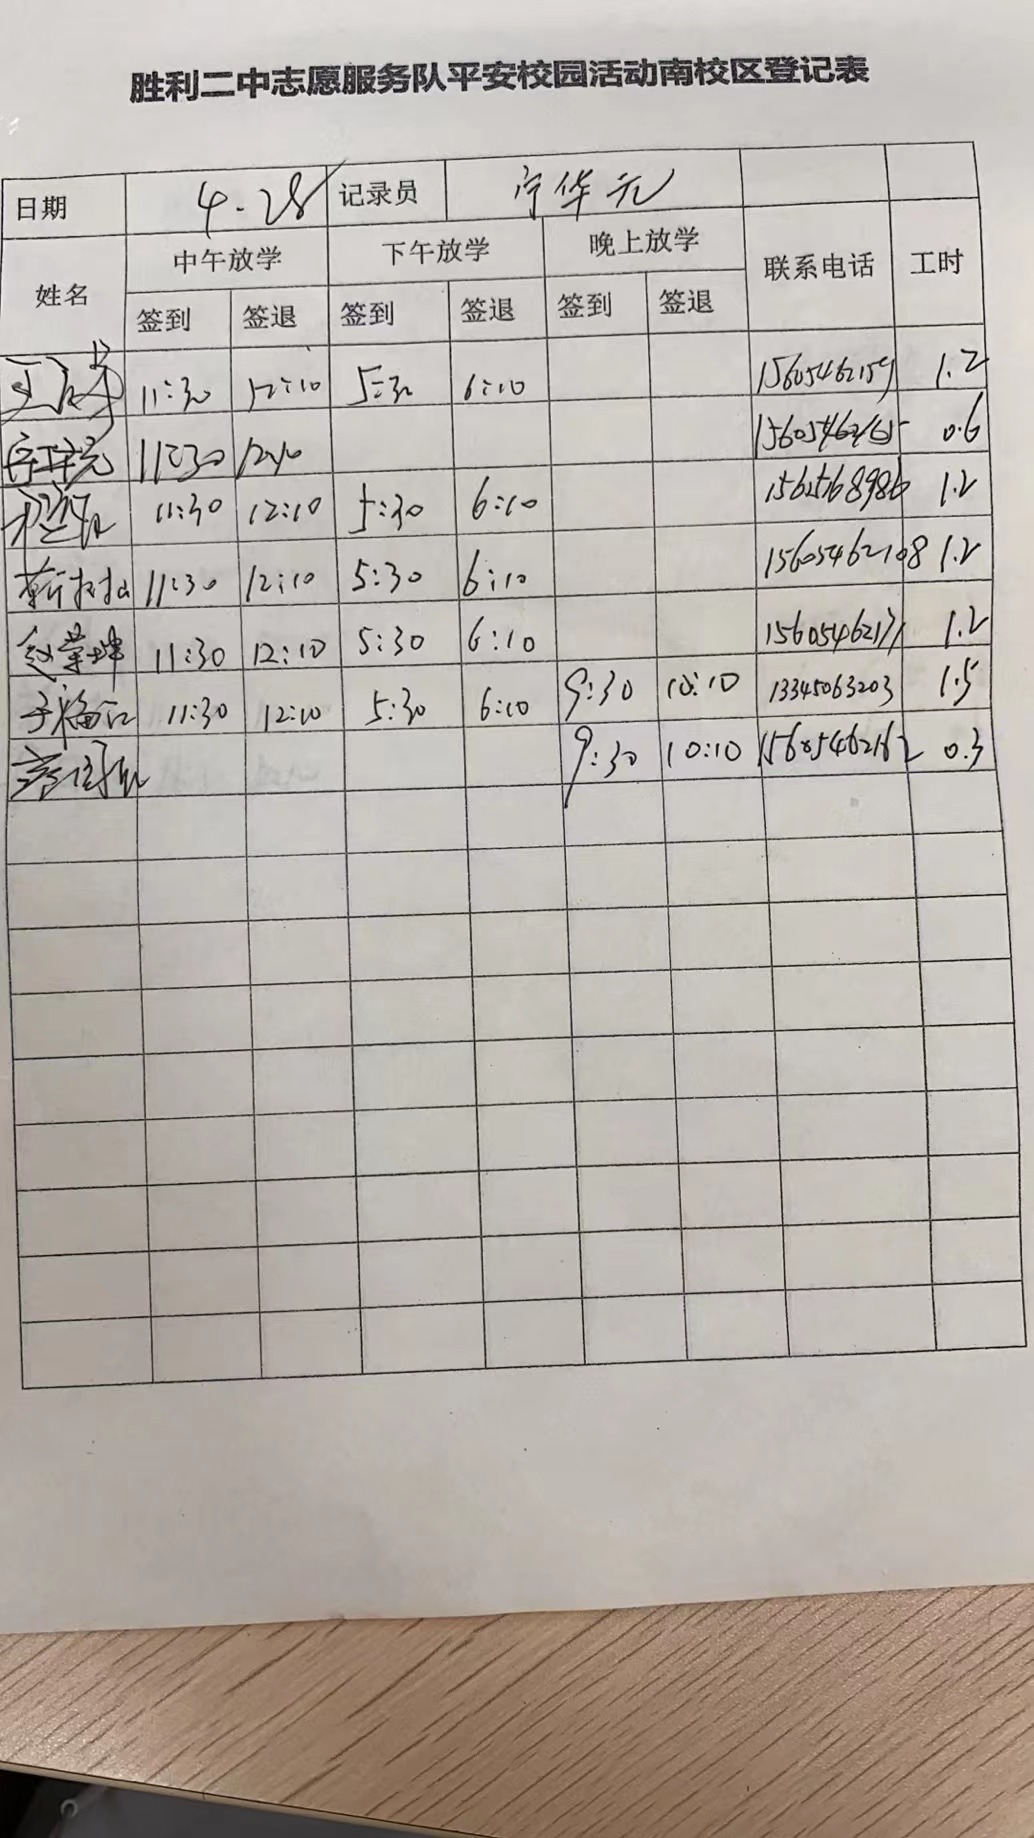 胜利二中志愿服务队平安校园活动南校区登记表
日期 4.28 记录员 宁华元
姓名 中午放学 下午放学 晚上放学 联系电话 工时
签到 签退 签到 签退 签到 签退
11:30 12:10 5:30 6:10 1.2
11:30 12:10 0.6
11:30 12:10 5:30 6:10 15625768986 1.2
11:30 12:10 5:30 6:10 15605462108 1.2
赵荣坤 11:30 12:10 5:30 6:10 15605462171 1.2
11:30 12:10 5:30 6:10 9:30 10:10 13345063203 1.5
9:30 10:10 15605462162 0.3